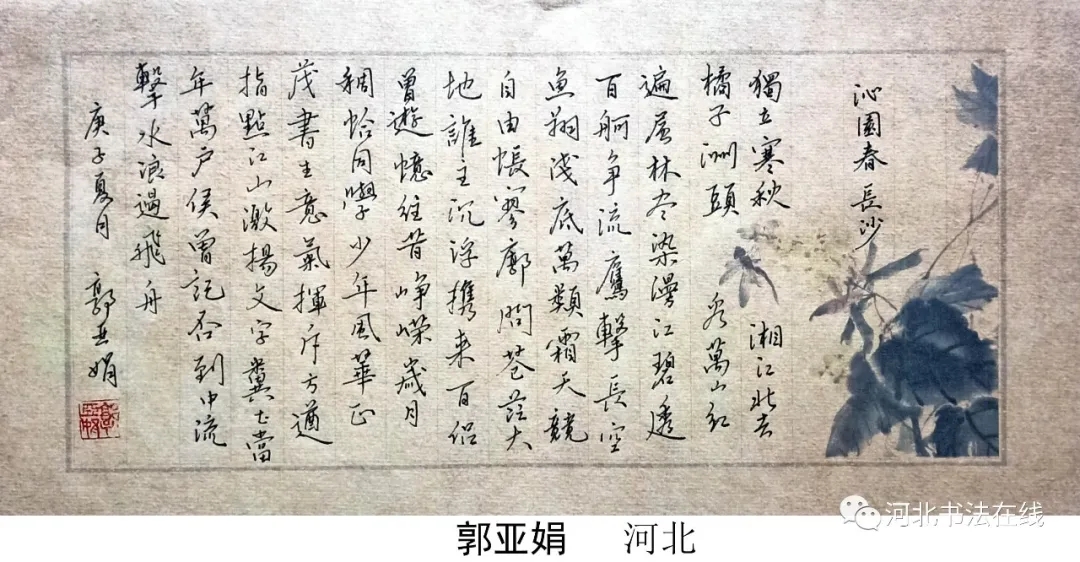 沁園春 長沙
獨立寒秋 湘江北去
橘子洲頭 看萬山红
遍层林尽染漫江碧透
百舸争流鷹擊長空
魚翔浅底萬類霜天競
自由悵寥廓問苍茫大
地誰主沉浮携来百侣
曾遊憶往昔峥嵘歲月
稠恰同學少年風華正
茂書生意氣揮斥方遒
指點江山激揚文字糞土當
年萬户侯曾記否到中流
擊水浪遏飛舟
庚子夏月 郭亚娟
河北书法在线
郭亚娟 河北